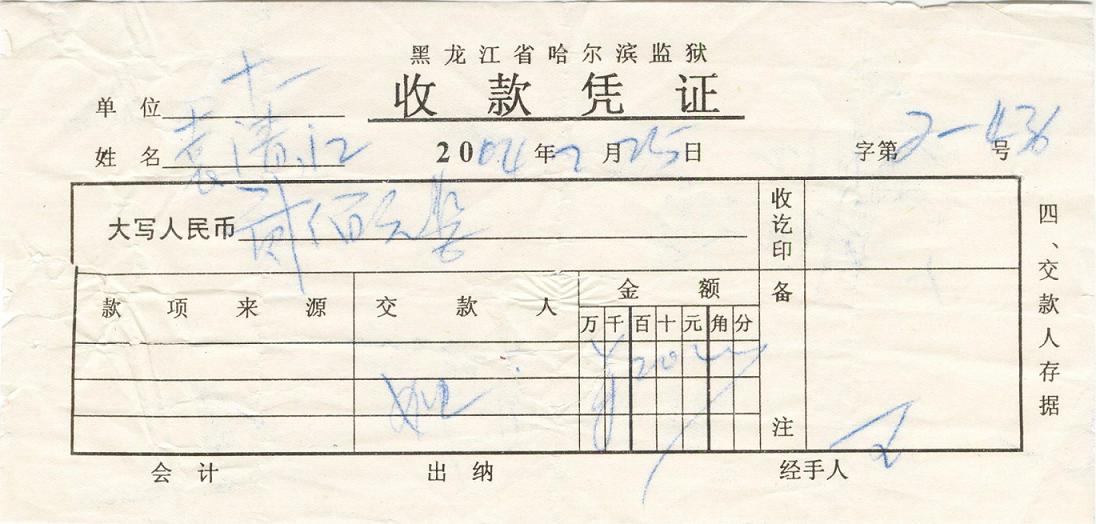 黑龙江省哈尔滨监狱
收款凭证
单位 十一
姓名 袁清江 2004年2月25日 字第2-436号
大写人民币 贰佰元整 收讫印
款项来源 交款人 金额 备注
万 千 百 十 元 角 分
会计 出纳 经手人 王
四、交款人存据